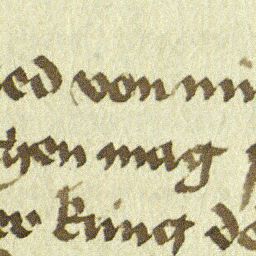 ed von mi
hen mag
er küng de